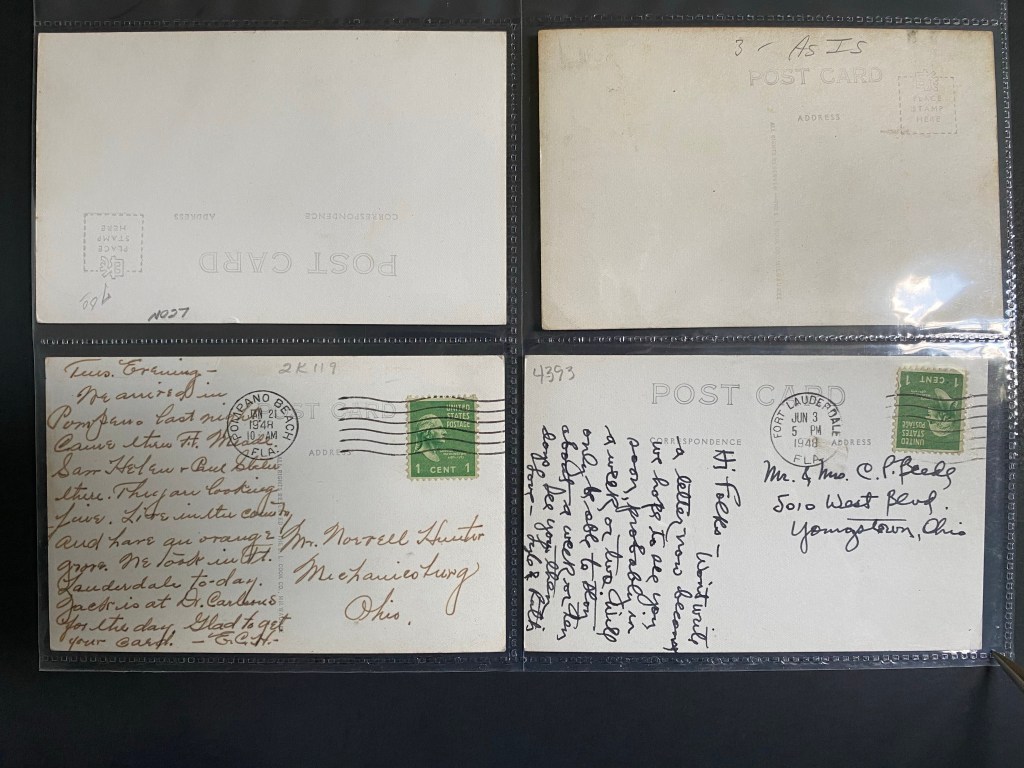 PLACE
STAMP
HERE
ADDRESS
CORRESPONDENCE
POST CARD
LEON
3 - As Is
POST CARD
ADDRESS
PLACE
STAMP
HERE
Tues. Evening -
We arrived in
last
Came thru Ft.
Saw Helen +
They are looking
fine. Live in the country
and have an orange
grove. We took in Ft.
Lauderdale to-day.
Jack is at Dr.
for the day. Glad to get
your card. - E.C.H. -
2K119
POST CARD
ADDRESS
POMPANO BEACH
JAN 21
10 AM
1948
FLA.
UNITED
STATES
POSTAGE
1 CENT 1
Mr. Norrell Hunter
Mechanicsburg
Ohio.
4393
POST CARD
CORRESPONDENCE
Hi Folks - Won't write
a letter now because
we hope to see you
soon, probably in
a week or two. Will
only be able to
about a week or ten
days. See you then
Love -
FORT LAUDERDALE
JUN 3
5 PM
1948
FLA.
1 CENT 1
UNITED
STATES
POSTAGE
Mr. & Mrs. C. P. Beede
5010 West Blvd.
Youngstown, Ohio